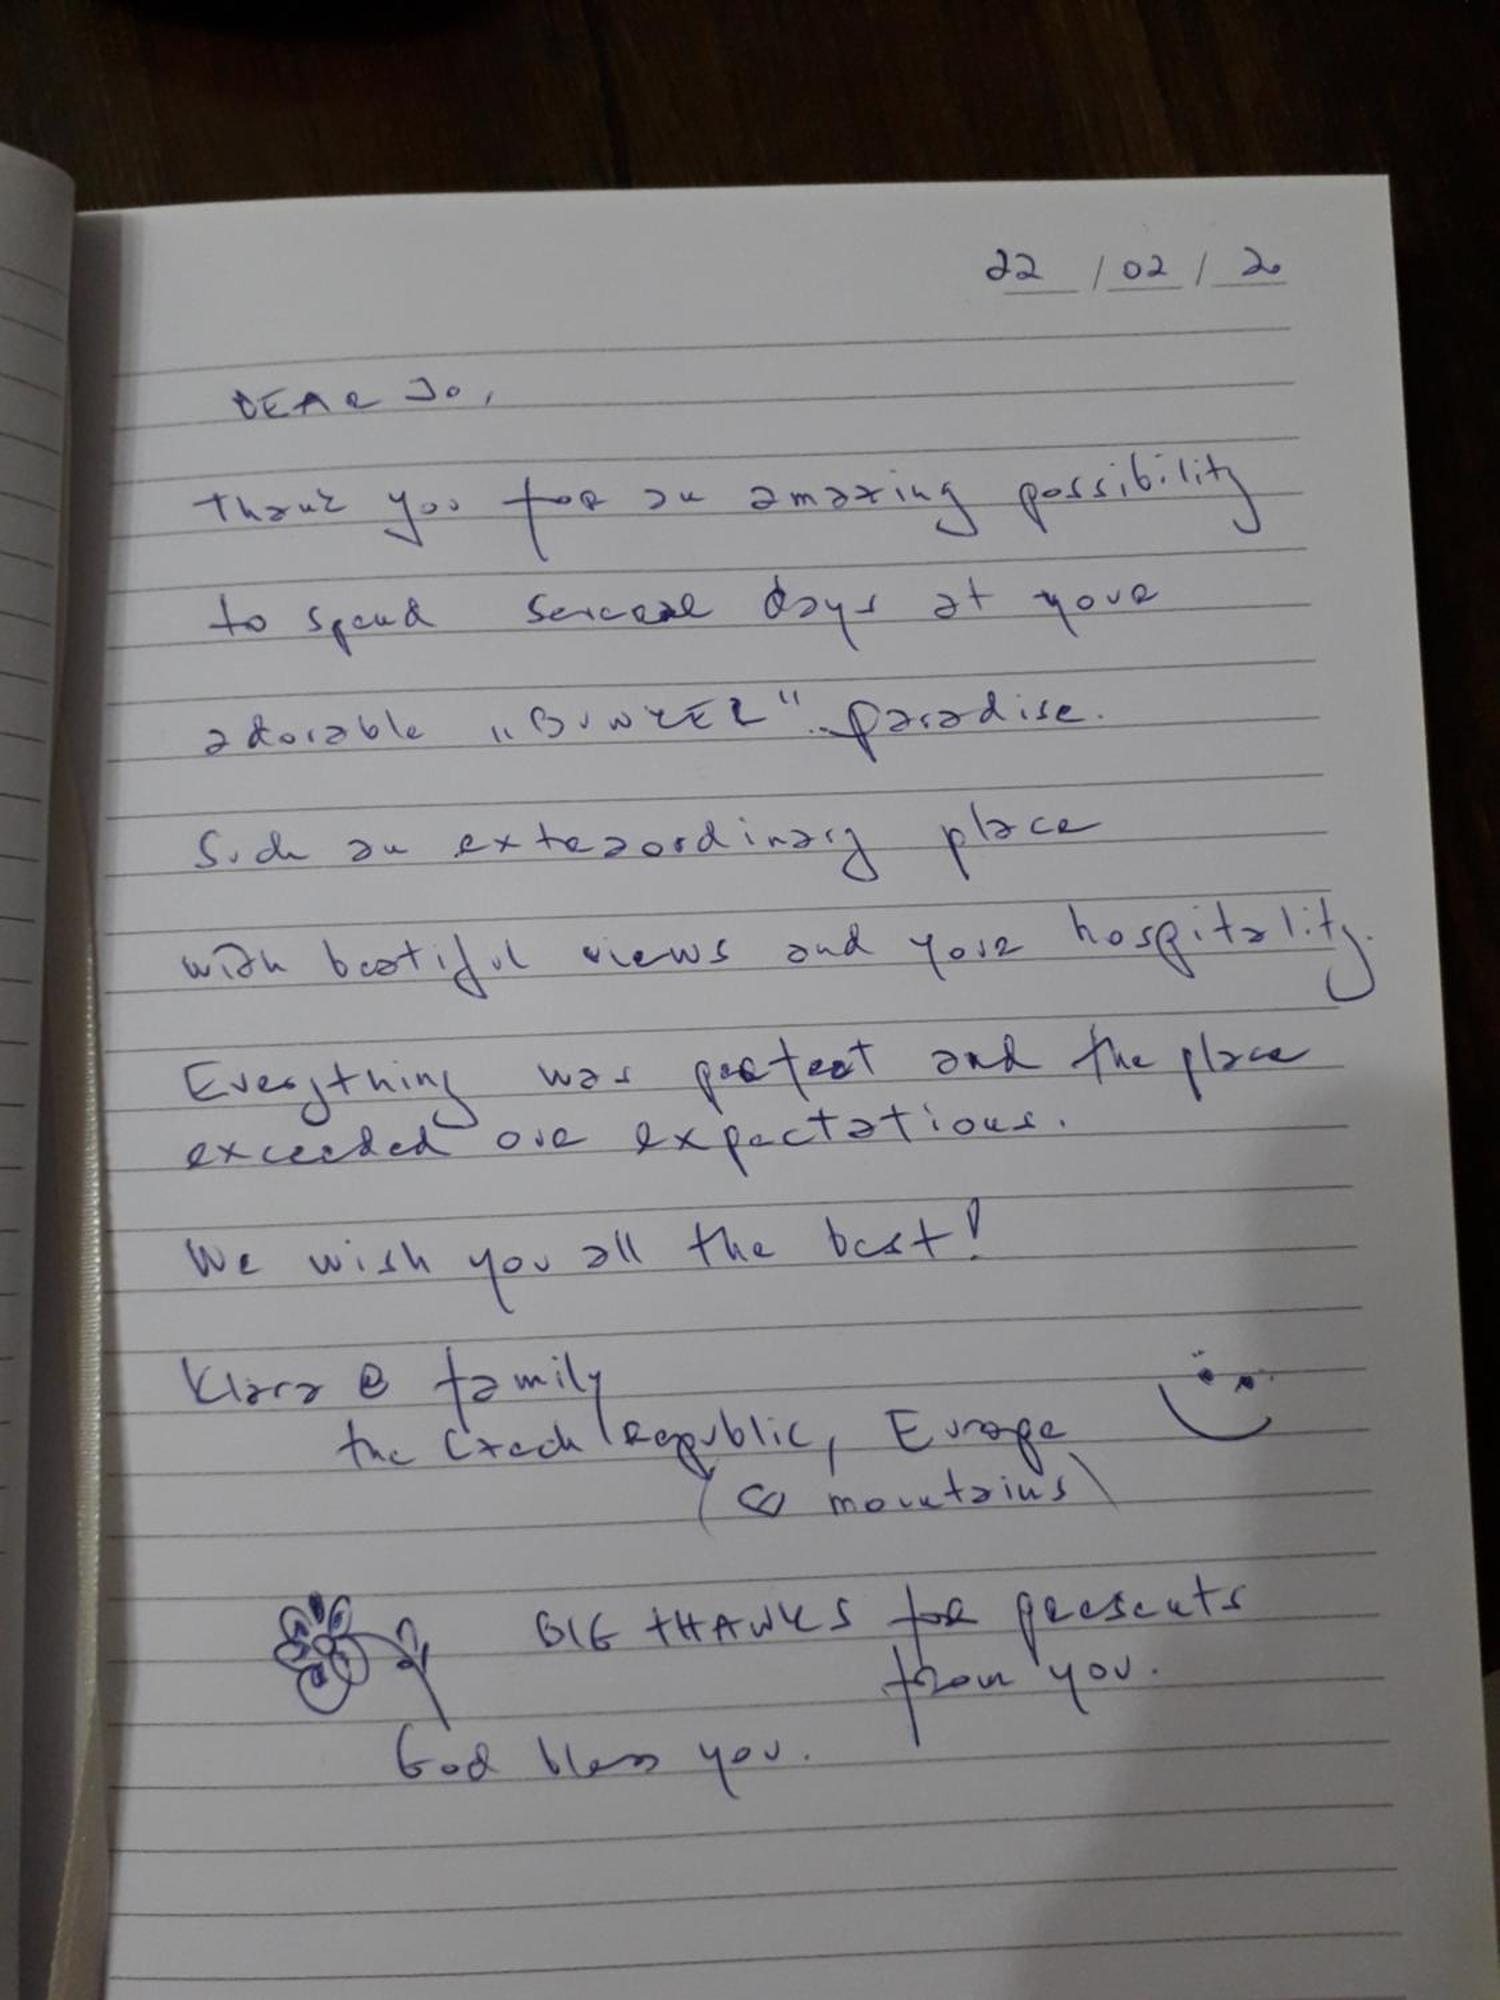 22 / 02 / 20
DEAR Jo,
Thank you for an amazing possibility
to spend several days at your
adorable „BUNKER" paradise.
Such an extraordinary place
with beatiful views and your hospitality.
Everything was perfect and the place
exceeded our expectations.
We wish you all the best!
Klara & family
the Czech Republic, Europe
(♡ mountains)
BIG THANKS for presents
from you.
God bless you.